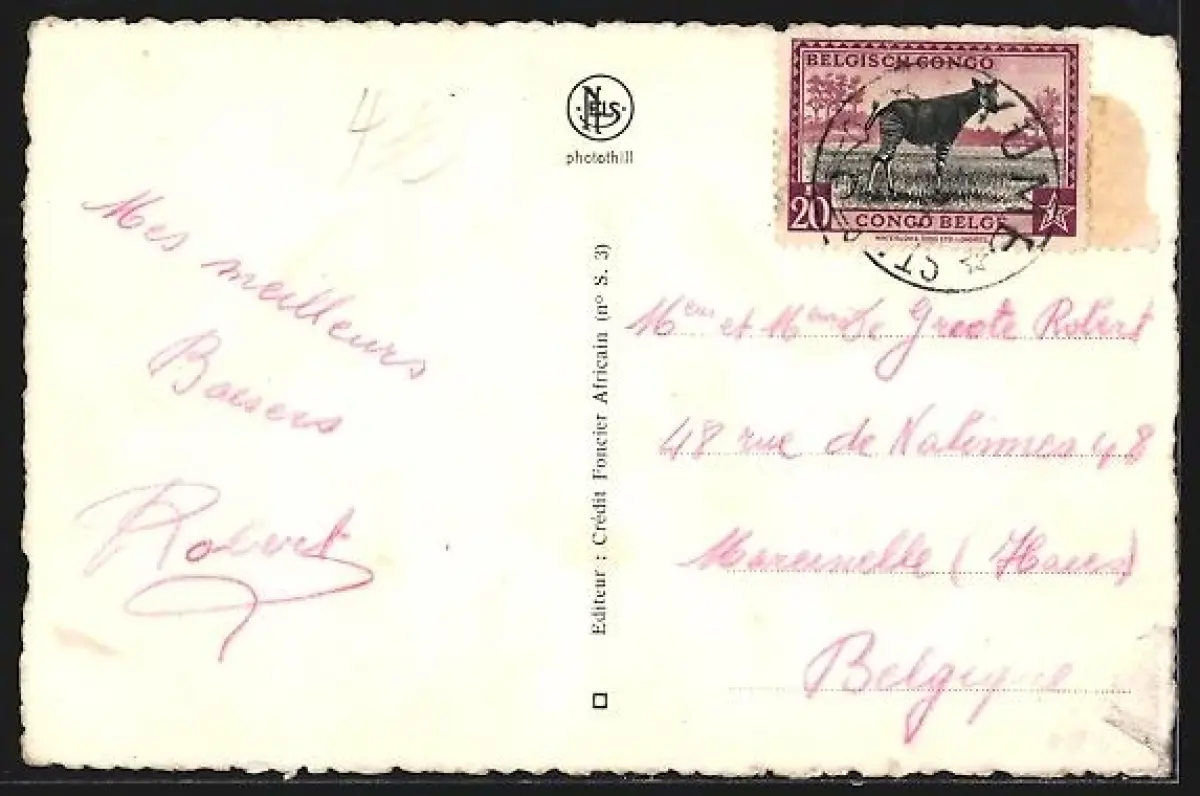 4
Mes meilleurs
Baisers
Robert
NELS
photothill
Editeur : Crédit Foncier Africain (n° S. 3)
BELGISCH CONGO
20
CONGO BELGE
Mr et Mme De Greote Robert
48 rue de Nalinnes 48
Marcinelle (Hain)
Belgique